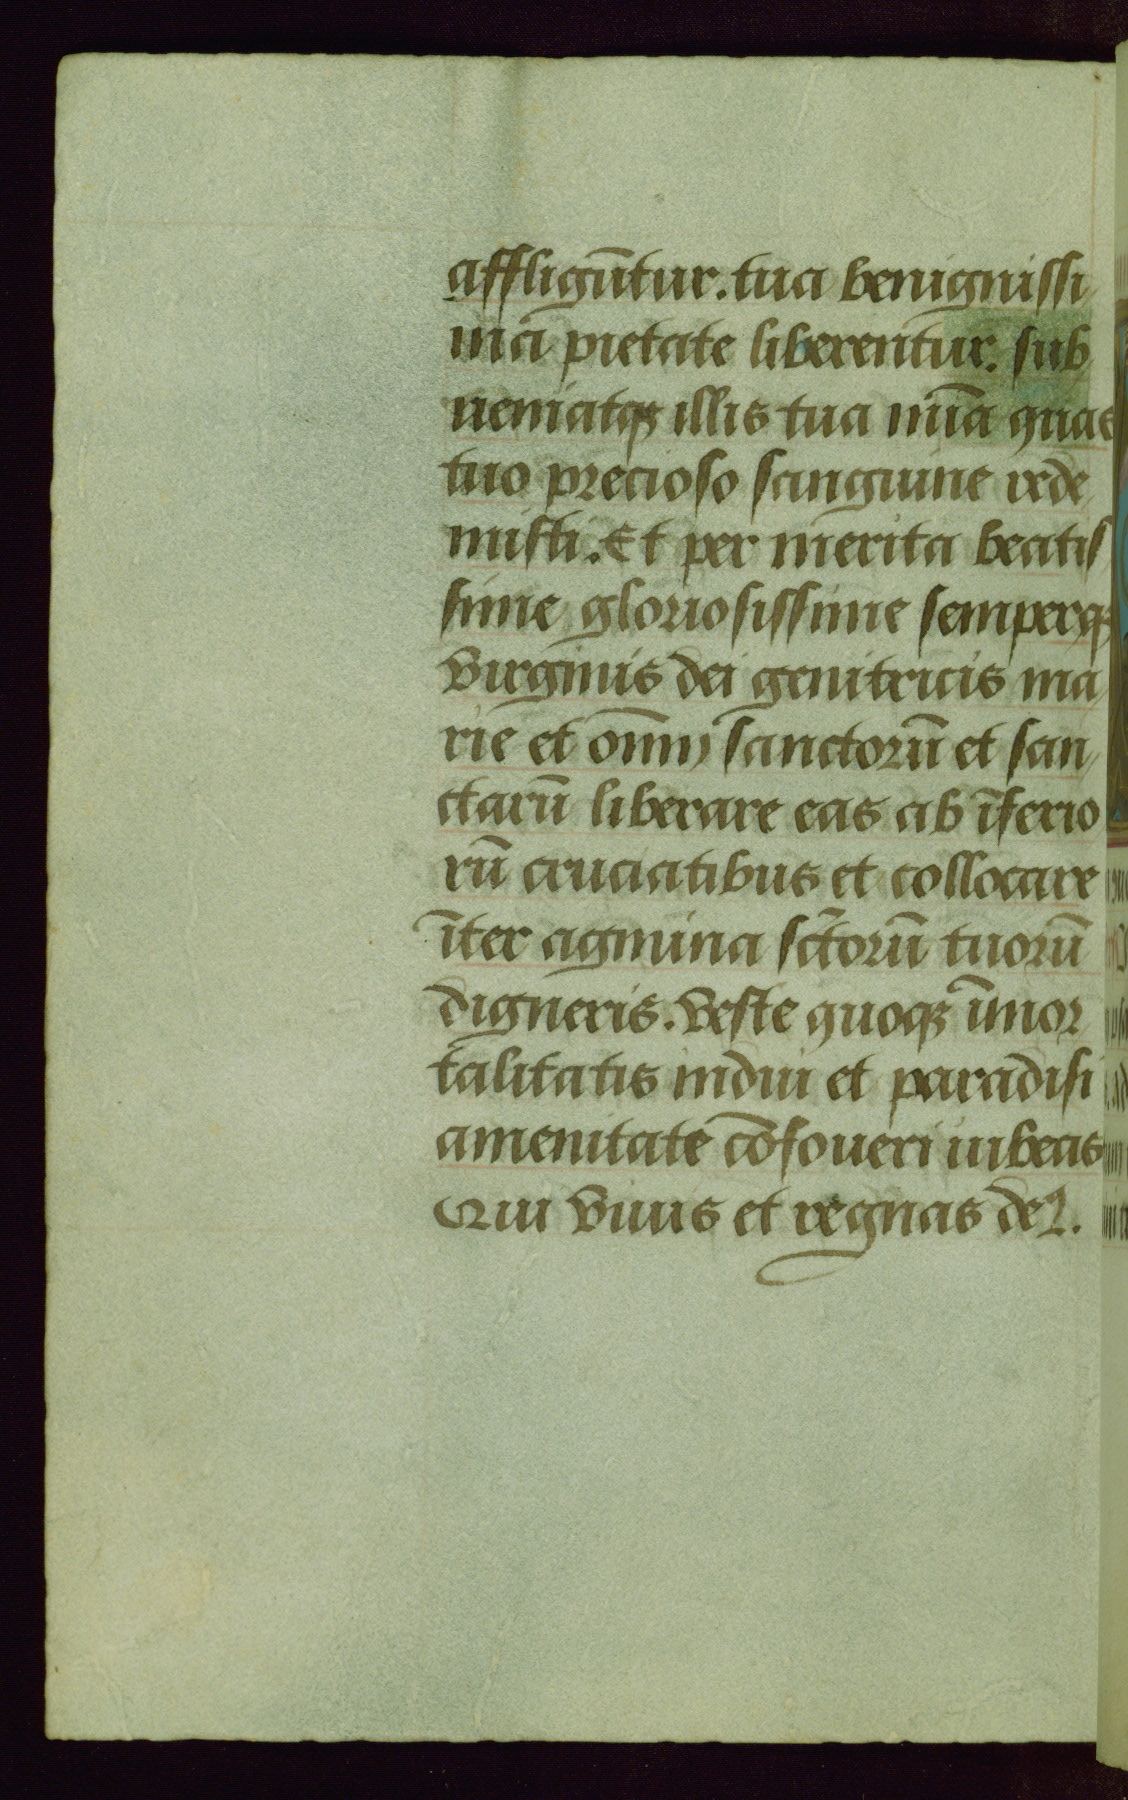 affligūtur. tua benignissi
ma pietate liberentur. sub
ueniatqȝ illis tua mīa quas
tuo precioso sanguine rede
misti. Et per merita beatis
sime gloriosissime semperqȝ
virginis dei genitricis ma
rie et om̄ sanctorū et san
ctarū liberare eas ab īferio
rū cruciatibus et collocare
īter agmina sc̄torū tuorū
digneris. Veste quoqȝ īmor
talitatis indui et paradisi
amenitate cōfoueri iubeas
Qui viuis et regnas deꝰ.